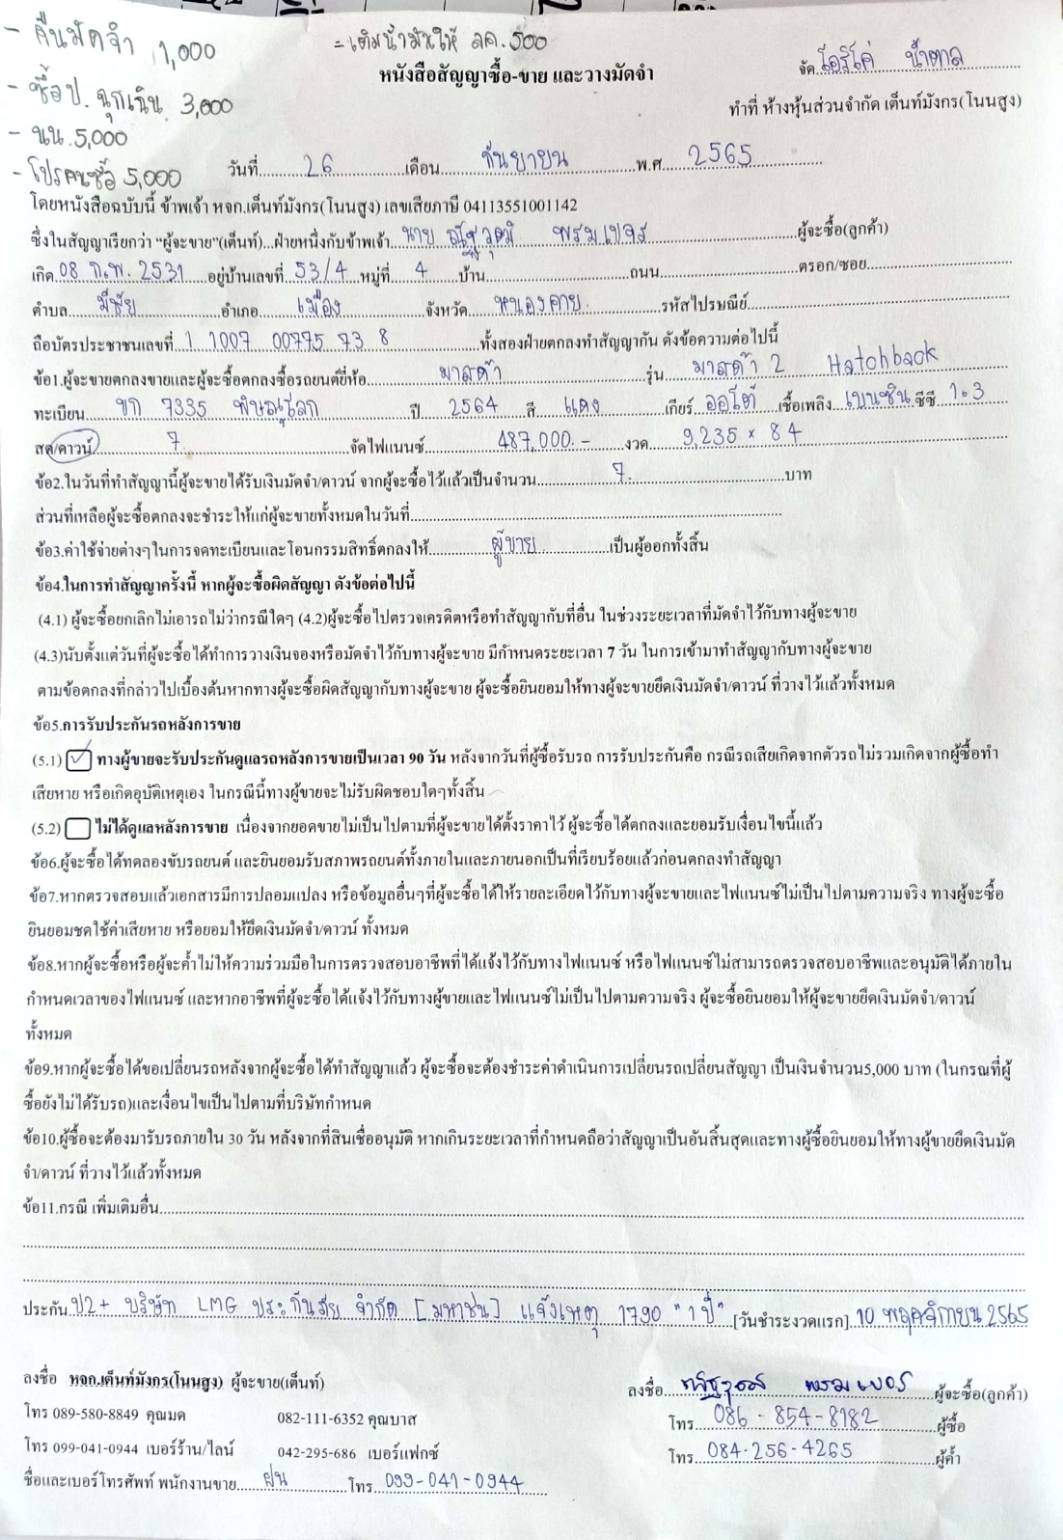 - คืนมัดจำ 1,000
= เติมน้ำมันให้ ลค. 500
- ซื้อป. ฉุกเฉิน 3,000
- นน. 5,000
- โปรคนซื้อ 5,000
หนังสือสัญญาซื้อ-ขาย และวางมัดจำ
จัด โอริโค่ น้ำตาล
ทำที่ ห้างหุ้นส่วนจำกัด เต็นท์มังกร(โนนสูง)
วันที่ 26 เดือน กันยายน พ.ศ. 2565
โดยหนังสือฉบับนี้ ข้าพเจ้า หจก.เต็นท์มังกร(โนนสูง) เลขเสียภาษี 04113551001142
ซึ่งในสัญญาเรียกว่า "ผู้จะขาย"(เต็นท์)...ฝ่ายหนึ่งกับข้าพเจ้า นาย ณัฐวุฒิ พรมเบจร ผู้จะซื้อ(ลูกค้า)
เกิด 08 ก.พ. 2531 อยู่บ้านเลขที่ 53/4 หมู่ที่ 4 บ้าน ถนน ตรอก/ซอย
ตำบล มีชัย อำเภอ เมือง จังหวัด หนองคาย รหัสไปรษณีย์
ถือบัตรประชาชนเลขที่ 1 1007 00775 73 8 ทั้งสองฝ่ายตกลงทำสัญญากัน ดังข้อความต่อไปนี้
ข้อ1.ผู้จะขายตกลงขายและผู้จะซื้อตกลงซื้อรถยนต์ยี่ห้อ มาสด้า รุ่น มาสด้า 2 Hatchback
ทะเบียน ขก 7335 พิษณุโลก ปี 2564 สี แดง เกียร์ ออโต้ เชื้อเพลิง เบนซิน ซีซี 1.3
สด/ดาวน์ 7 จัดไฟแนนซ์ 487,000.- งวด 9,235 x 84
ข้อ2.ในวันที่ทำสัญญานี้ผู้จะขายได้รับเงินมัดจำ/ดาวน์ จากผู้จะซื้อไว้แล้วเป็นจำนวน 7. บาท
ส่วนที่เหลือผู้จะซื้อตกลงจะชำระให้แก่ผู้จะขายทั้งหมดในวันที่
ข้อ3.ค่าใช้จ่ายต่างๆในการจดทะเบียนและโอนกรรมสิทธิ์ตกลงให้ ผู้ขาย เป็นผู้ออกทั้งสิ้น
ข้อ4.ในการทำสัญญาครั้งนี้ หากผู้จะซื้อผิดสัญญา ดังข้อต่อไปนี้
(4.1) ผู้จะซื้อยกเลิกไม่เอารถไม่ว่ากรณีใดๆ (4.2)ผู้จะซื้อไปตรวจเครดิตหรือทำสัญญากับที่อื่น ในช่วงระยะเวลาที่มัดจำไว้กับทางผู้จะขาย
(4.3)นับตั้งแต่วันที่ผู้จะซื้อได้ทำการวางเงินจองหรือมัดจำไว้กับทางผู้จะขาย มีกำหนดระยะเวลา 7 วัน ในการเข้ามาทำสัญญากับทางผู้จะขาย
ตามข้อตกลงที่กล่าวไปเบื้องต้นหากทางผู้จะซื้อผิดสัญญากับทางผู้จะขาย ผู้จะซื้อยินยอมให้ทางผู้จะขายยึดเงินมัดจำ/ดาวน์ ที่วางไว้แล้วทั้งหมด
ข้อ5.การรับประกันรถหลังการขาย
(5.1) ✓ ทางผู้ขายจะรับประกันดูแลรถหลังการขายเป็นเวลา 90 วัน หลังจากวันที่ผู้ซื้อรับรถ การรับประกันคือ กรณีรถเสียเกิดจากตัวรถไม่รวมเกิดจากผู้ซื้อทำ
เสียหาย หรือเกิดอุบัติเหตุเอง ในกรณีนี้ทางผู้ขายจะไม่รับผิดชอบใดๆทั้งสิ้น
(5.2) ไม่ได้ดูแลหลังการขาย เนื่องจากยอดขายไม่เป็นไปตามที่ผู้จะขายได้ตั้งราคาไว้ ผู้จะซื้อได้ตกลงและยอมรับเงื่อนไขนี้แล้ว
ข้อ6.ผู้จะซื้อได้ทดลองขับรถยนต์ และยินยอมรับสภาพรถยนต์ทั้งภายในและภายนอกเป็นที่เรียบร้อยแล้วก่อนตกลงทำสัญญา
ข้อ7.หากตรวจสอบแล้วเอกสารมีการปลอมแปลง หรือข้อมูลอื่นๆที่ผู้จะซื้อได้ให้รายละเอียดไว้กับทางผู้จะขายและไฟแนนซ์ไม่เป็นไปตามความจริง ทางผู้จะซื้อ
ยินยอมชดใช้ค่าเสียหาย หรือยอมให้ยึดเงินมัดจำ/ดาวน์ ทั้งหมด
ข้อ8.หากผู้จะซื้อหรือผู้จะค้ำไม่ให้ความร่วมมือในการตรวจสอบอาชีพที่ได้แจ้งไว้กับทางไฟแนนซ์ หรือไฟแนนซ์ไม่สามารถตรวจสอบอาชีพและอนุมัติได้ภายใน
กำหนดเวลาของไฟแนนซ์ และหากอาชีพที่ผู้จะซื้อได้แจ้งไว้กับทางผู้ขายและไฟแนนซ์ไม่เป็นไปตามความจริง ผู้จะซื้อยินยอมให้ผู้จะขายยึดเงินมัดจำ/ดาวน์
ทั้งหมด
ข้อ9.หากผู้จะซื้อได้ขอเปลี่ยนรถหลังจากผู้จะซื้อได้ทำสัญญาแล้ว ผู้จะซื้อจะต้องชำระค่าดำเนินการเปลี่ยนรถเปลี่ยนสัญญา เป็นเงินจำนวน5,000 บาท (ในกรณที่ผู้
ซื้อยังไม่ได้รับรถ)และเงื่อนไขเป็นไปตามที่บริษัทกำหนด
ข้อ10.ผู้ซื้อจะต้องมารับรถภายใน 30 วัน หลังจากที่สินเชื่ออนุมัติ หากเกินระยะเวลาที่กำหนดถือว่าสัญญาเป็นอันสิ้นสุดและทางผู้ซื้อยินยอมให้ทางผู้ขายยึดเงินมัด
จำ/ดาวน์ ที่วางไว้แล้วทั้งหมด
ข้อ11.กรณี เพิ่มเติมอื่น
ประกัน ป2+ บริษัท LMG ประกันภัย จำกัด [มหาชน] แจ้งเหตุ 1790 "1 ปี" [วันชำระงวดแรก] 10 พฤศจิกายน 2565
ลงชื่อ หจก.เต็นท์มังกร(โนนสูง) ผู้จะขาย(เต็นท์)
ลงชื่อ ณัฐวุฒิ พรมเบจร ผู้จะซื้อ(ลูกค้า)
โทร 089-580-8849 คุณมด 082-111-6352 คุณบาส
โทร 086-854-8182 ผู้ซื้อ
โทร 099-041-0944 เบอร์ร้าน/ไลน์ 042-295-686 เบอร์แฟกซ์
โทร 084-256-4265 ผู้ค้ำ
ชื่อและเบอร์โทรศัพท์ พนักงานขาย ฝน โทร 099-041-0944